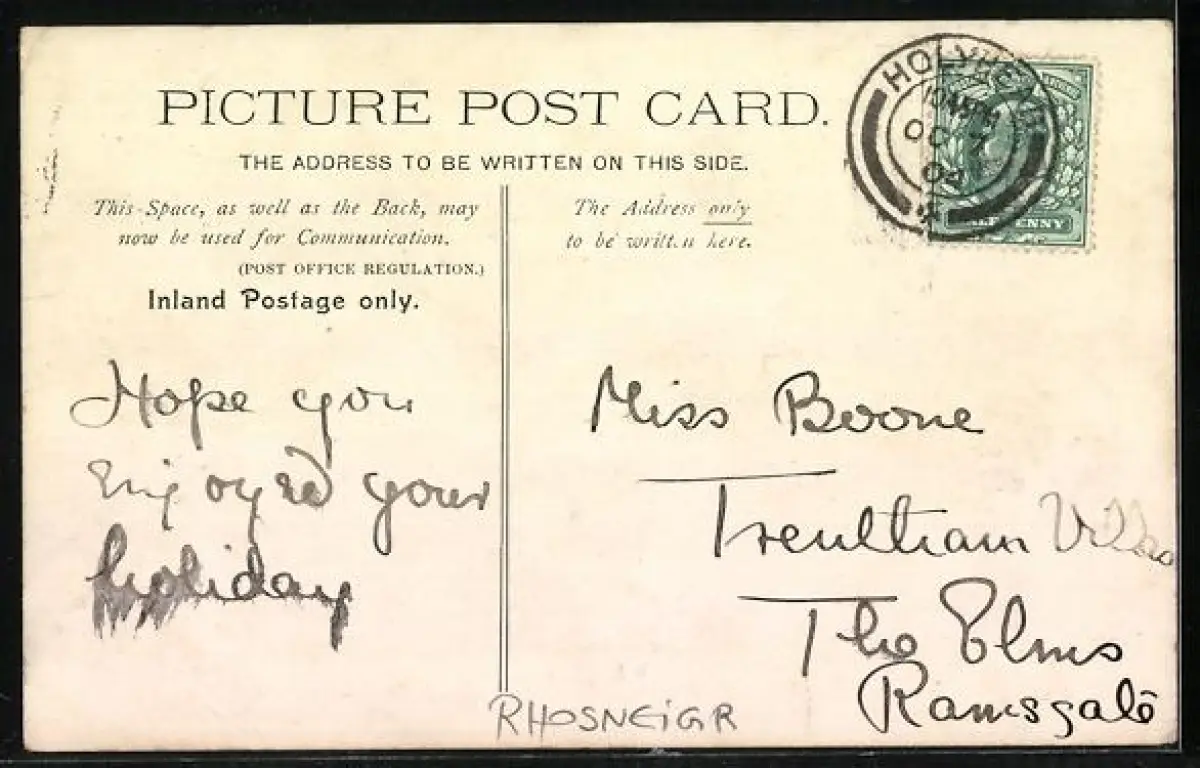 PICTURE POST CARD.
THE ADDRESS TO BE WRITTEN ON THIS SIDE.
This Space, as well as the Back, may
now be used for Communication.
(POST OFFICE REGULATION.)
Inland Postage only.
The Address only
to be written here.
HOLYHEAD
OC
HALFPENNY
Hope you
Enjoyed your
holiday
Miss Boone
Trentham Villas
The Elms
Ramsgate
RHOSNEIGR